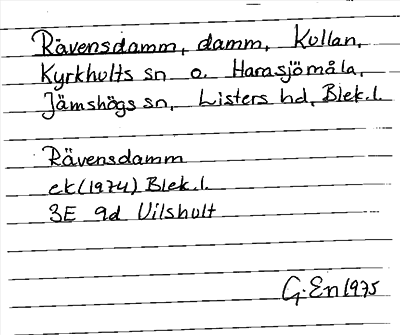 Rävensdamm, damm, Kullan,
Kyrkhults sn o. Harasjömåla,
Jämshögs sn, Listers hd, Blek.l.
Rävensdamm
ek(1974) Blek.l.
3E 9d Vilshult
G.En 1975